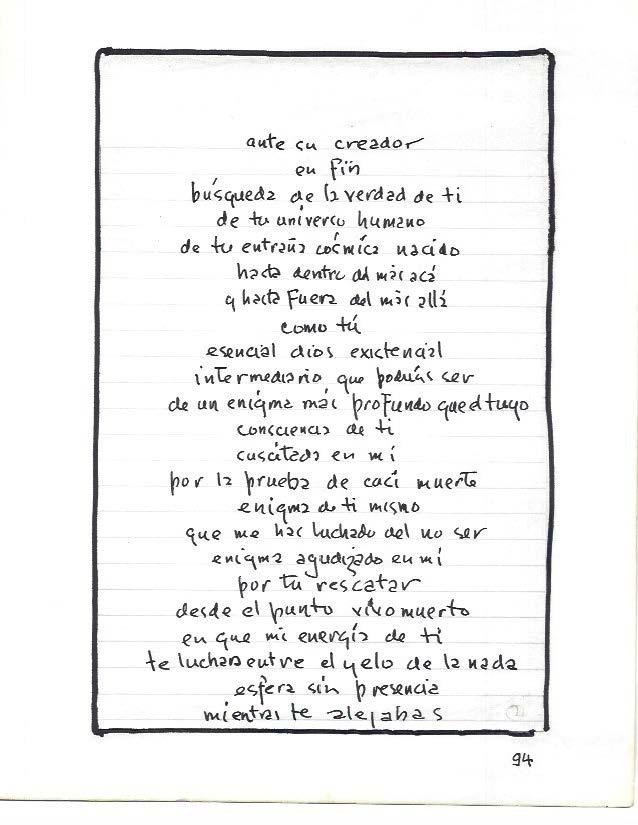 ante su creador
en fin
búsqueda de la verdad de ti
de tu universo humano
de tu entraña cósmica nacido
hasta dentro del más acá
y hasta fuera del más allá
como tú
esencial dios existencial
intermediario que podrías ser
de un enigma más profundo que el tuyo
consciencia de ti
suscitada en mí
por la prueba de casi muerte
enigma de ti mismo
que me has luchado del no ser
enigma agudizado en mí
por tu rescatar
desde el punto vivomuerto
en que mi energía de ti
te luchaba entre el yelo de la nada
esfera sin presencia
mientras te alejabas
94